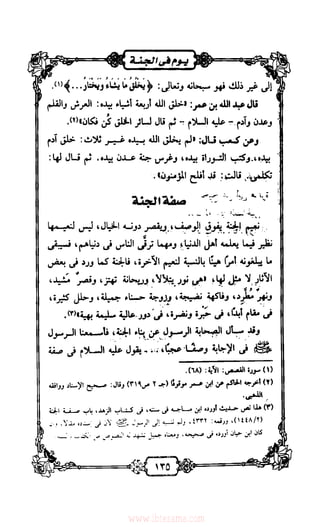 يوم فى الجنة
إلى غير ذلك فهو سبحانه وتعالى: ﴿يَخْلُقُ مَا يَشَاءُ وَيَخْتَارُ...﴾(١).
قال عبد الله بن عمر: «خلق الله أربعة أشياء بيده: العرش والقلم
وعدن وآدم - عليه السلام - ثم قال لسائر الخلق كن فكان»(٢).
وعن كعب قال: «لم يخلق الله بيده غير ثلاث: خلق آدم
بيده، وكتب التوراة بيده، وغرس جنة عدن بيده. ثم قال لها:
تكلمى. قالت: قد أفلح المؤمنون».
صفة الجنة
نعيم الجنة يفوق الوصف، ويقصر دونه الخيال، ليس لنعيمها
نظير فيما يعلمه أهل الدنيا، ومهما ترقَّى الناس فى دنياهم، فسيبقى
ما يبلغونه أمرًا هينًا بالنسبة لنعيم الآخرة، فالجنة كما ورد فى بعض
الآثار لا مثل لها، «هى نور يتلألأ، وريحانة تهتز، وقصر مشيد،
ونهر مطرد، وفاكهة نضيجة، وزوجة حسناء جميلة، وحلل كثيرة،
فى مقام أبدًا، فى حبرة ونضرة، فى دور عالية سليمة بهية»(٣).
وقد سأل الصحابة الرسول عن بناء الجنة، فأسمعنا الرسول
ﷺ فى الإجابة وصفًا عجبًا، يقول عليه السلام فى صفة
(١) سورة القصص: الآية: (٦٨).
(٢) أخرجه الحاكم عن ابن عمر موقوفًا (جـ ٢ ص٣١٩) وقال: صحيح الإسناد ووافقه
الذهبى.
(٣) هذا نص حديث أورده ابن ماجه فى سننه، فى كتاب الزهد، باب صفة الجنة
(١٤٤٨/٢)، ورقمه: ٤٣٣٢، ولم ننسبه إلى الرسول ﷺ لأن فى إسناده مقالاً، وإن
كان ابن حبان أورده فى صحيحه، ومعناه جميل تشهد له النصوص من الكتاب
١٣٥
www.ibtesama.com